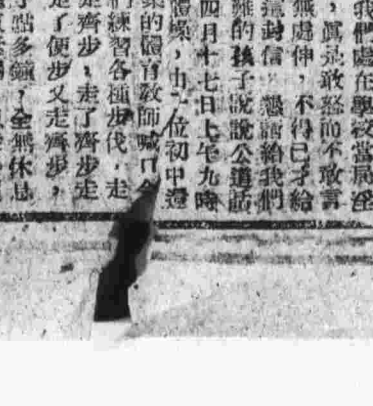 我們處在學校當局
無處伸，不得已才給
這封信，懇請給我們
的孩子說說公道話
四月十七日上午九時
體操，由一位初中
的體育教師喊口
們練習各種步伐，走
走齊步，走了齊步走
走了便步又走齊步，
點多鐘，全無休息